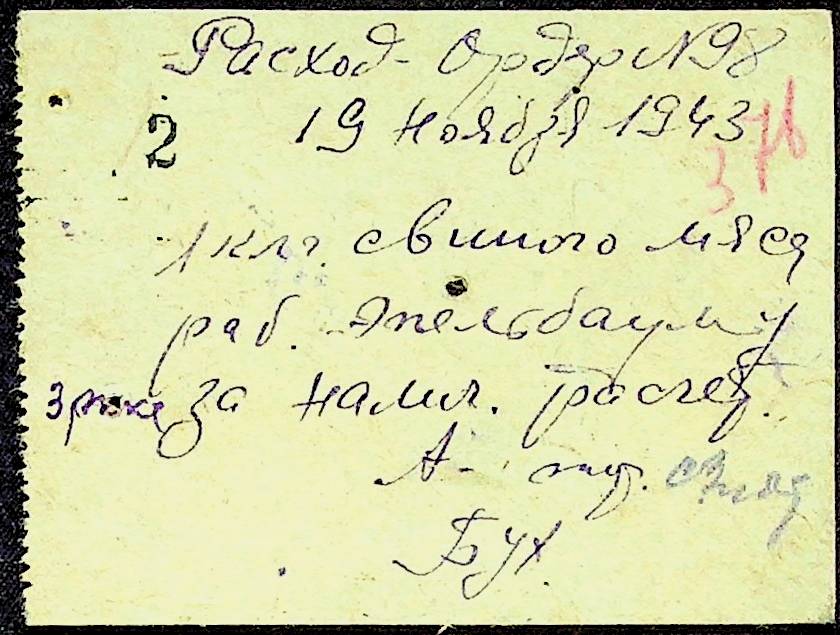 Расход-Ордер N98
19 Ноября 1943
2
376
1 клг. свиного мяса
раб. Эпельбауму
за налич. расчет.
А-
Бух.